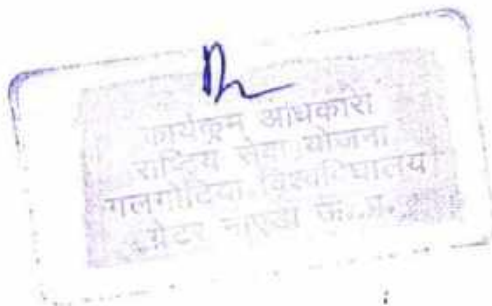 कार्यक्रम अधिकारी
राष्ट्रिय सेवा योजना
गलगोटिया विश्वविद्यालय
ग्रेटर नाएडा उ. प्र.